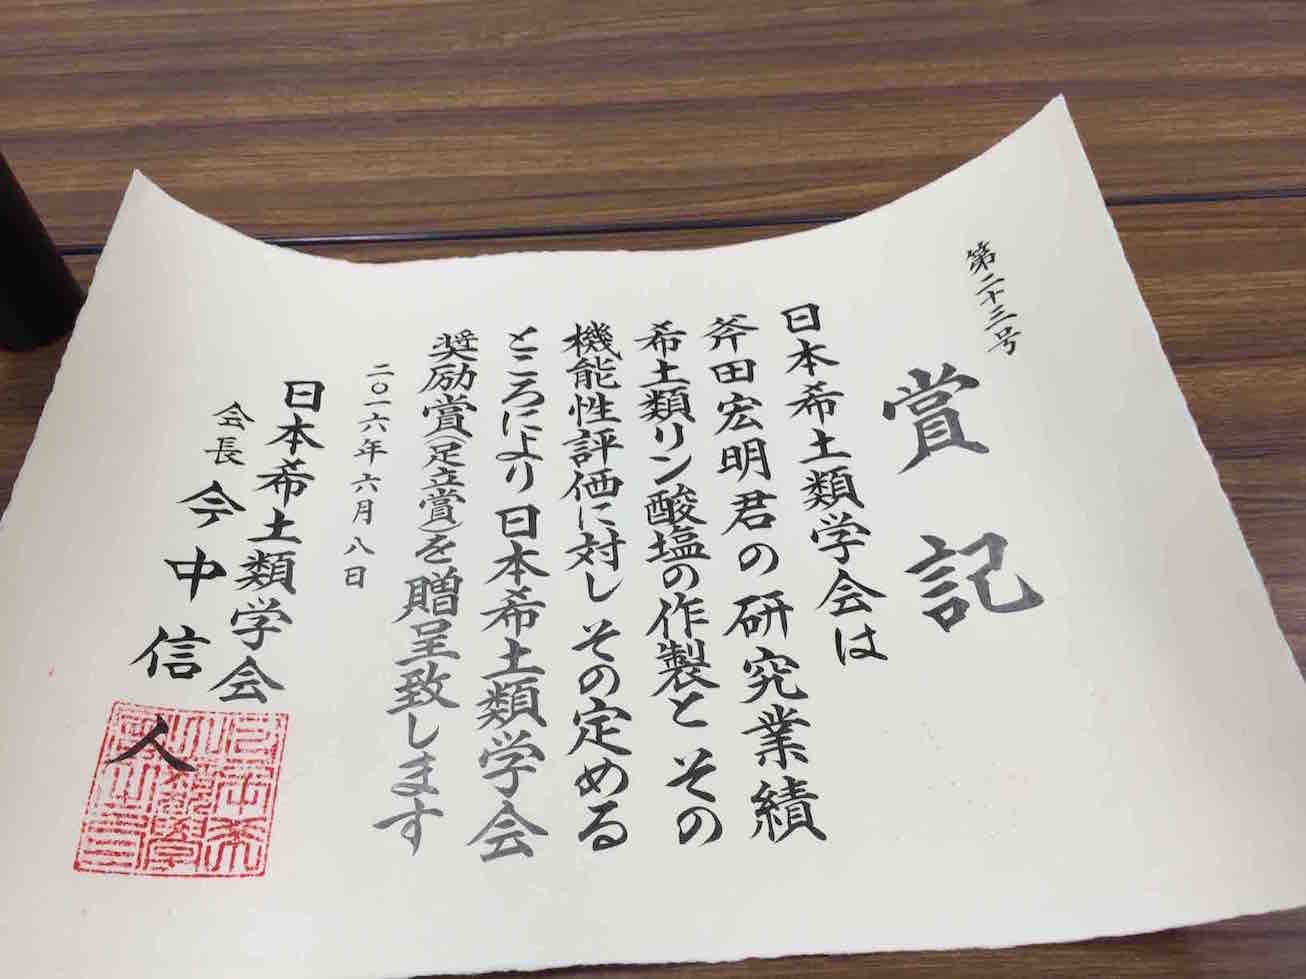 第二十三号
賞記
日本希土類学会は
斧田宏明君の研究業績
希土類リン酸塩の作製とその
機能性評価に対しその定める
ところにより日本希土類学会
奨励賞(足立賞)を贈呈致します
二〇一六年六月八日
日本希土類学会
会長 今中信人